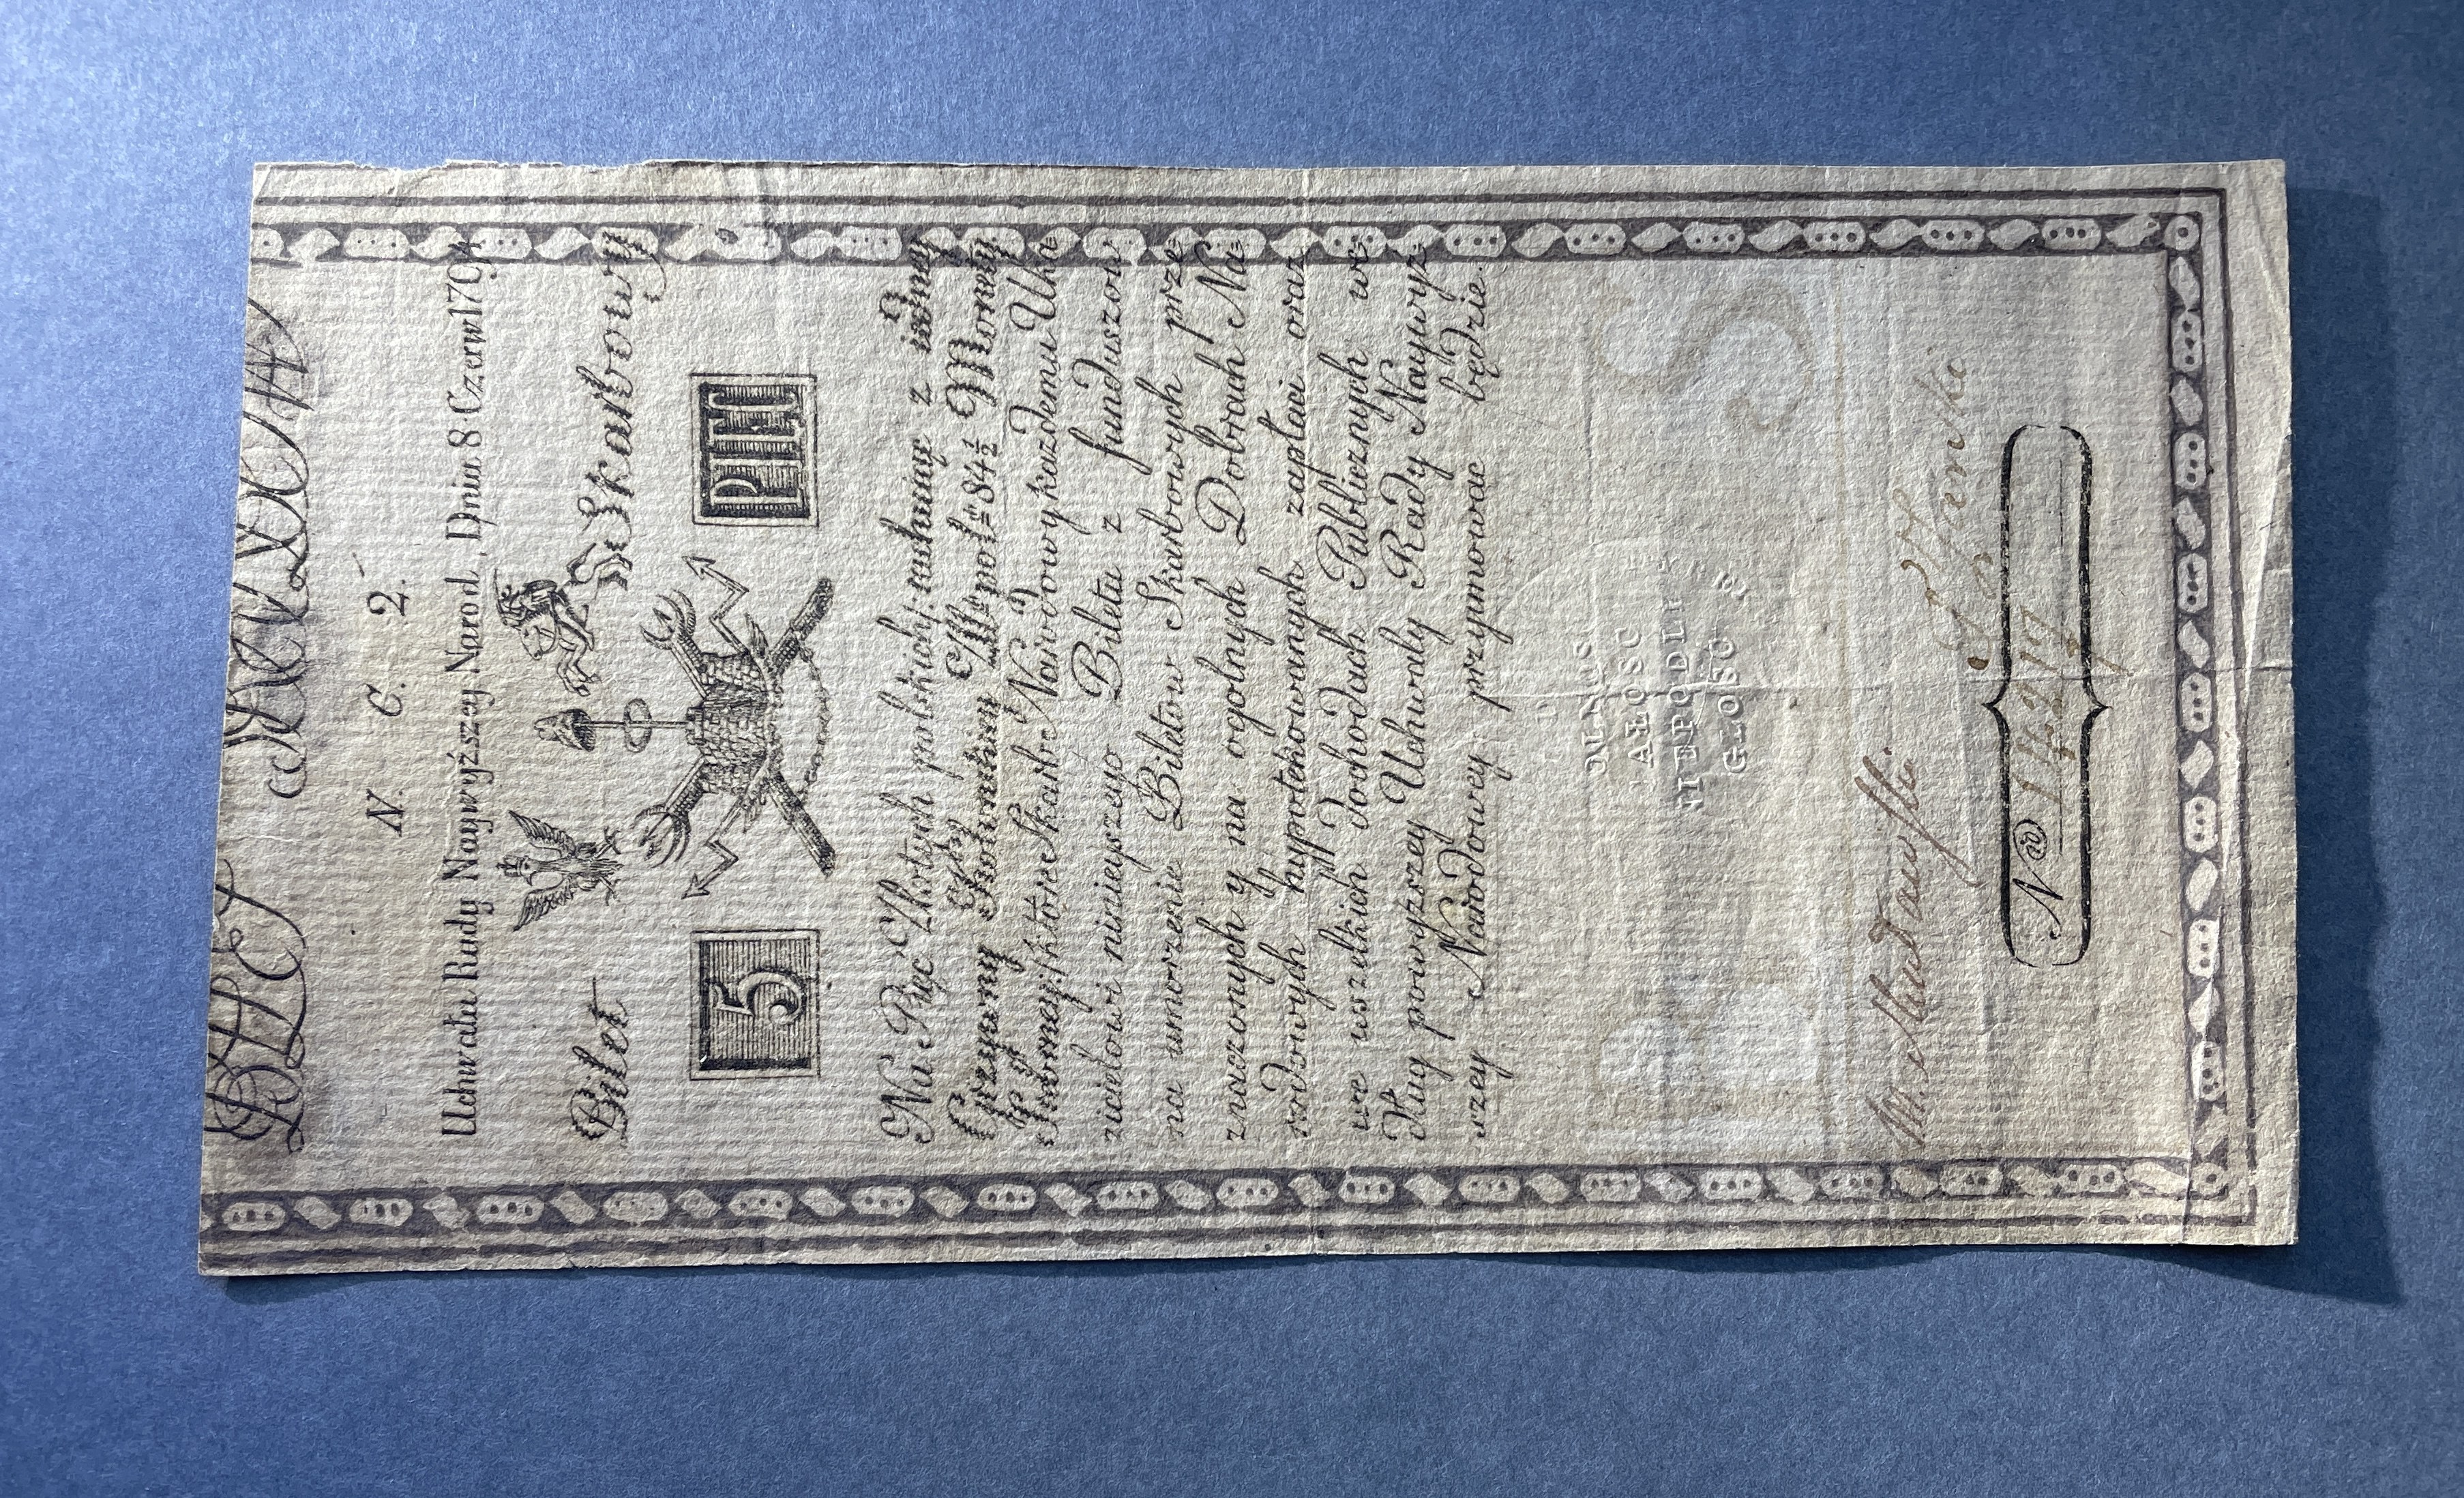 N. C. 2.
Uchwała Rady Naywyższey Narod. Dnia 8 Czerw 1794
Bilet Skarbowy
5 PIĘĆ
Na Pięć Złotych polskich, rachuiąc z iedney
Grzywny Czystey Kolońskiey Złł: pol: 84 1/2 Monety
Srebrney, które Skarb Narodowy każdemu Oka
zicielowi ninieyszego Biletu z funduszow
na umorzenie Biletow Skarbowych prze
znaczonych y na ogolnych Dobrach Na
rodowych hypotekowanych zapłaci oraz
we wszelkich Dochodach Publicznych we
dług powyższey Uchwały Rady Naywyż
szey Narodowey przyimować będzie.
OLNOS
AŁOSC
NIEPODLE
GŁOSC
No